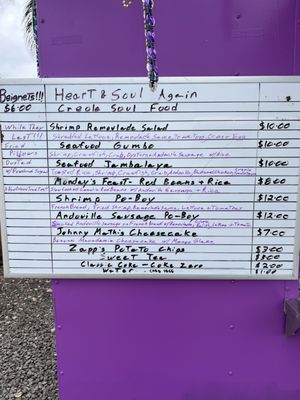 Beignets!!! Heart & Soul Again
$6.00 Creole Soul Food
While They Shrimp Remoulade Salad $10.00
Last!!! Shredded Lettuce, Remoulade, Tomatoes,
Fried Seafood Gumbo $10.00
Pillows Shrimp, Crawfish, Crab, Oysters Andouille Sausage w/Rice
Dusted Seafood Jambalaya $10.00
w/Powdered Sugar Rice, Shrimp, Crawfish, Crab, Andouille
Monday's Feast- Red Beans & Rice $8.00
Red Beans w Andouille Sausage & Rice
Shrimp Po-Boy $12.00
French Bread, Fried Shrimp, Remoulade, Lettuce & Tomatoes
Andouille Sausage Po-Boy $12.00
Andouille Sausage on French Bread w Lettuce & Tomato
Johnny Math's Cheesecake $7.00
Macadamia Cheesecake w/ Mango Glaze
Zapp's Potato Chips $2.00
Sweet Tea
Classic Coke - Coke Zero $2.00
Water $1.00